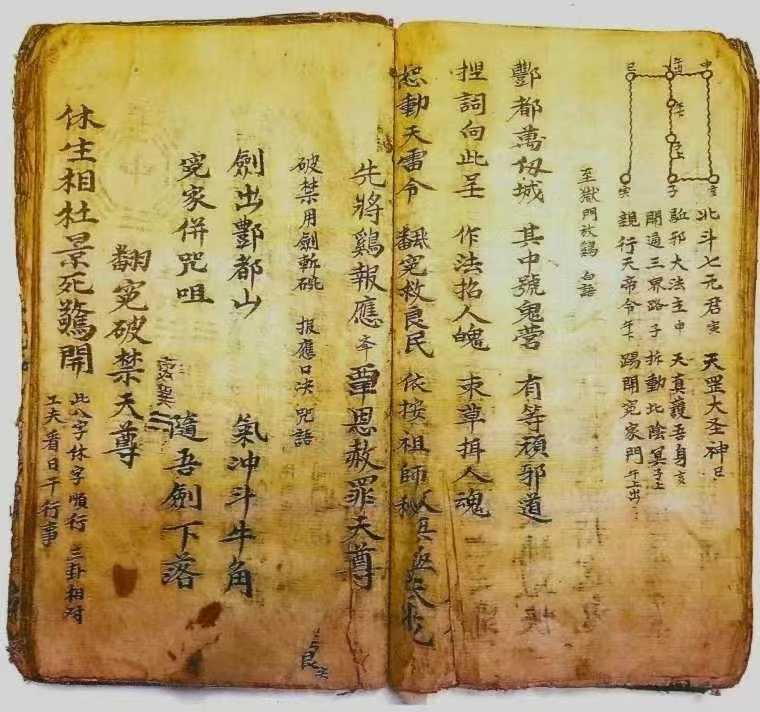 巳 申
寅 子 亥
北斗七元君寅 天罡大圣神巳
驅邪大法主申 天真護吾身亥
開通三界路子 拆動北陰冥子上
親行天帝令午 踢開冤家門午上出
至獄門放鷄 白語
酆都萬仞城 其中號鬼营 有等頑邪道
捏詞向此呈 作法掐人魄 束草揖人魂
怒動天雷令 翻冤救良民 依按祖師秘
先將鷄報應 覃恩赦罪天尊
破禁用劍斬碗 报應口决 咒語
劍出酆都山 氣冲斗牛角
冤家併咒咀 隨吾劍下落
翻冤破禁天尊
休生相杜景死驚開
此八字休字順行 三卦相对
工夫看日干行事